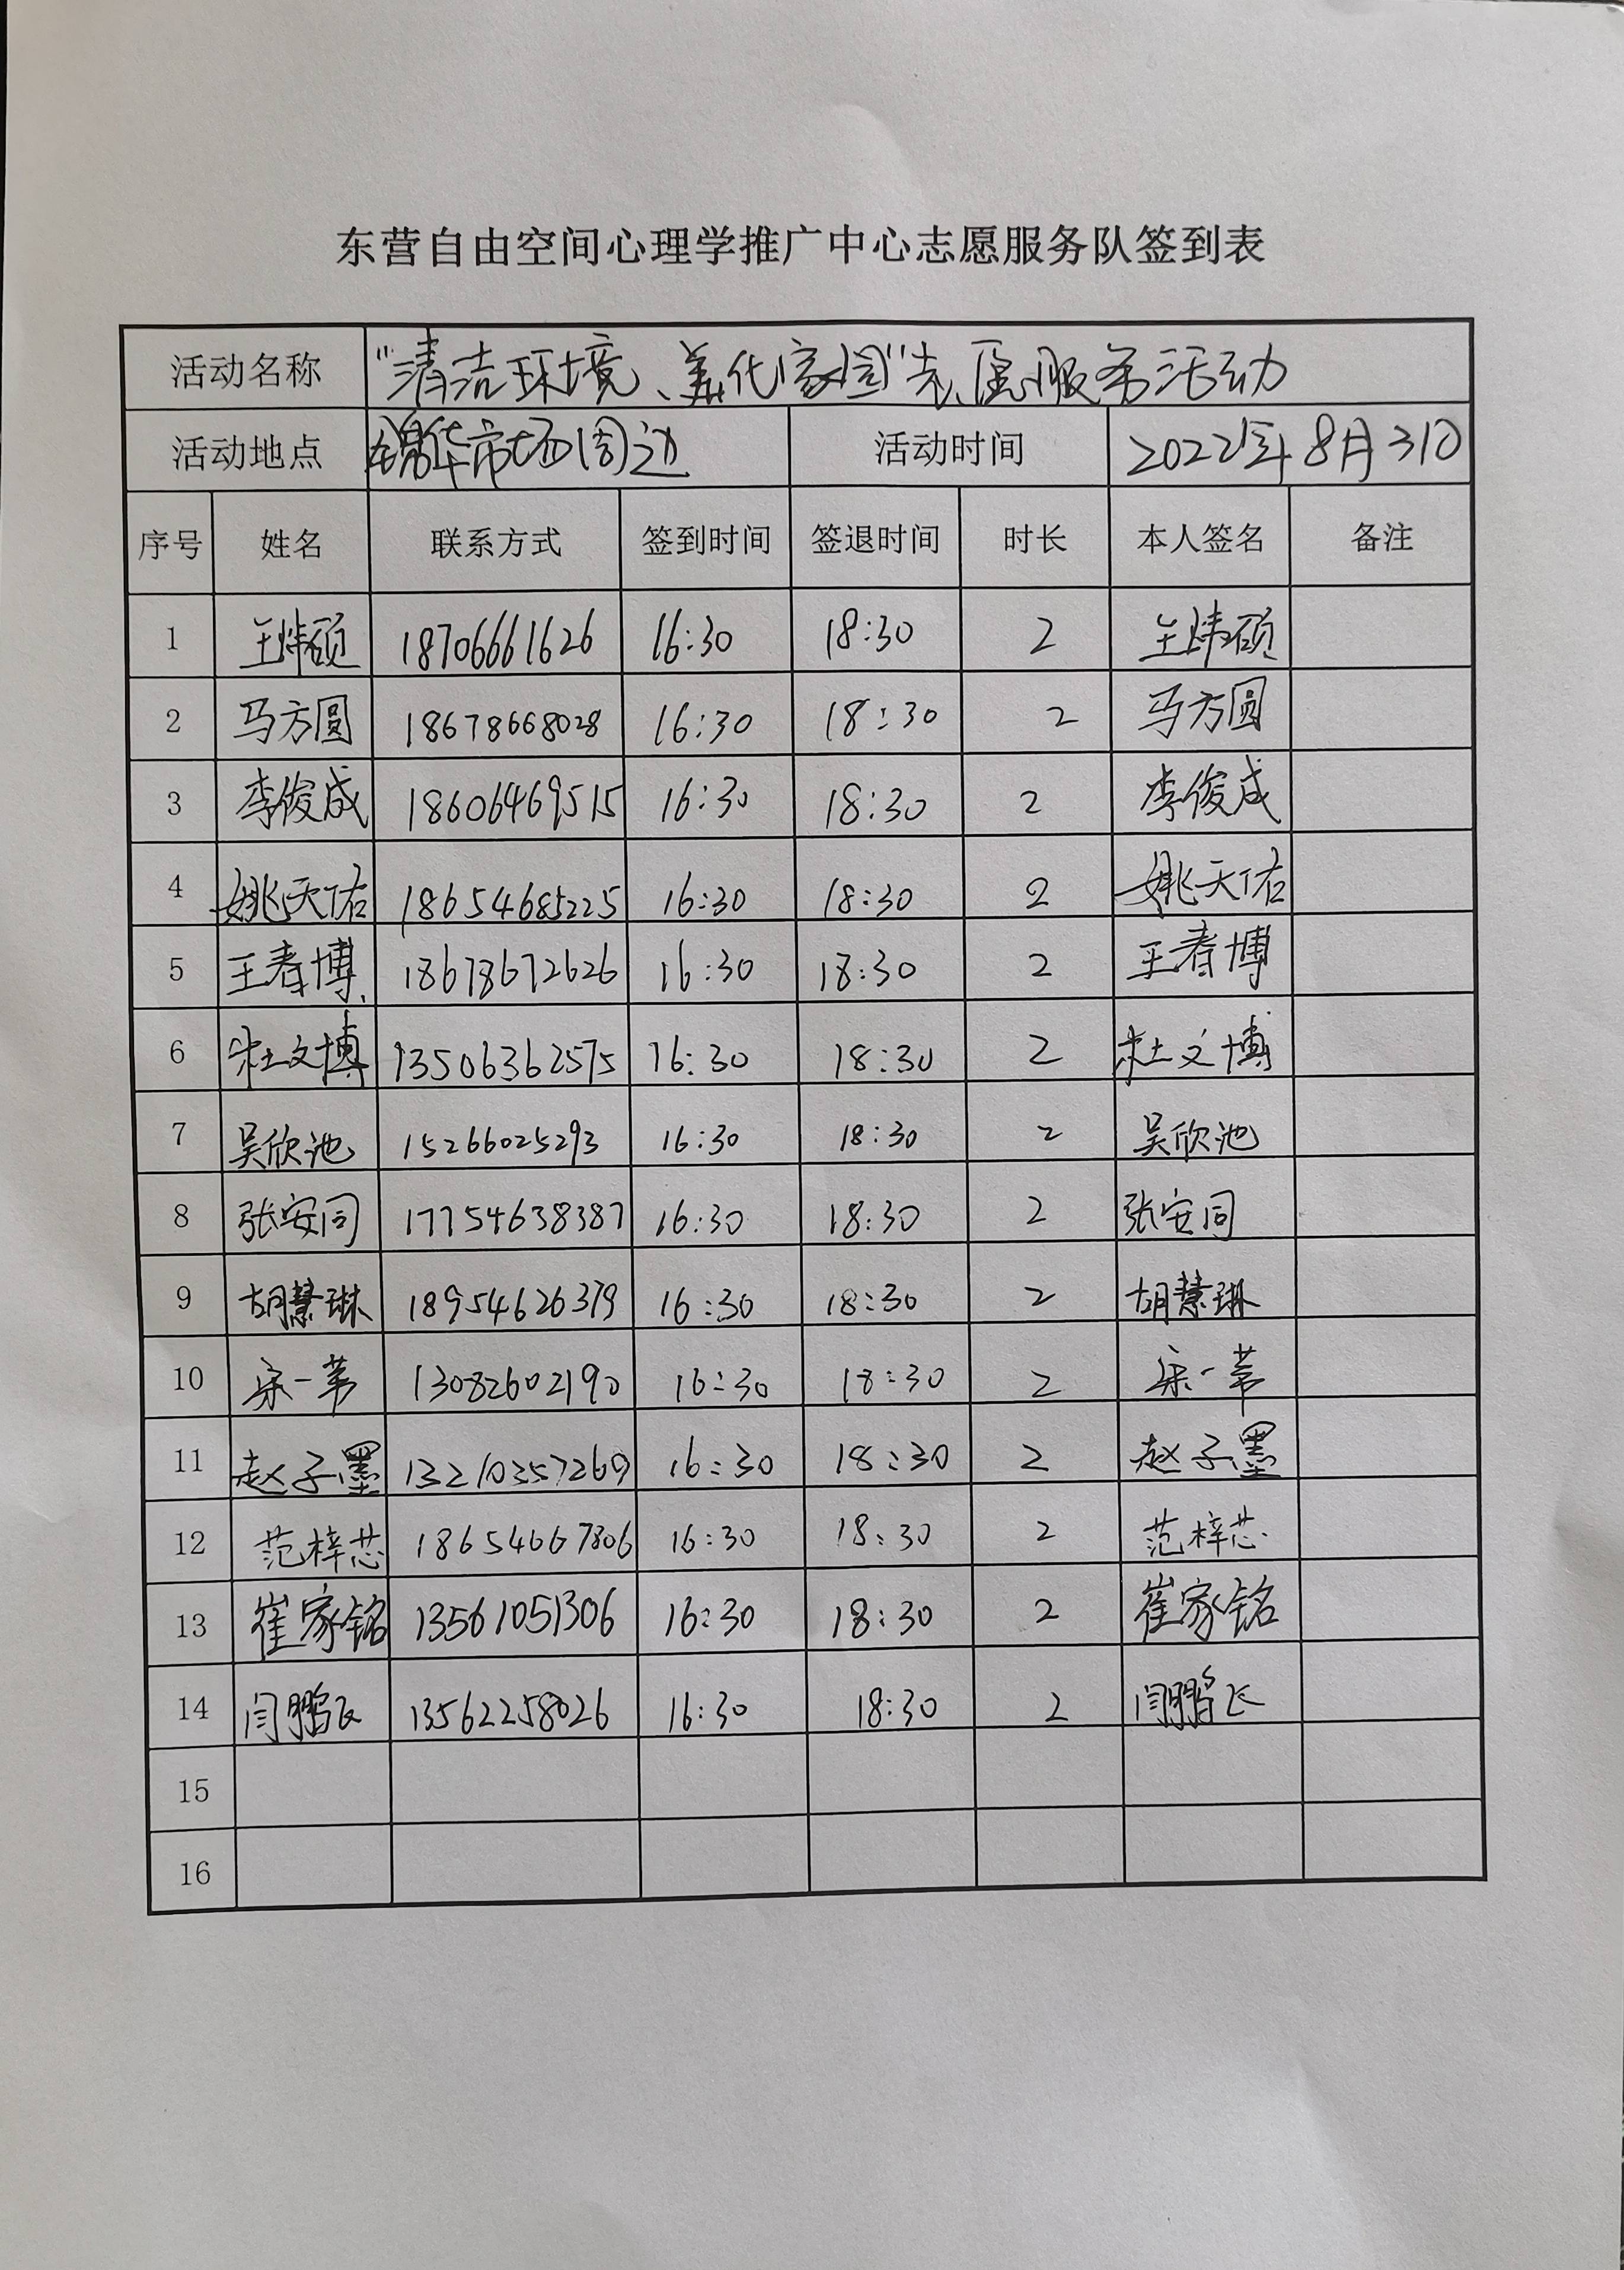 东营自由空间心理学推广中心志愿服务队签到表
活动名称 "清洁环境、美化家园"志愿服务活动
活动地点 锦华市场周边 活动时间 2022年8月31日
序号 姓名 联系方式 签到时间 签退时间 时长 本人签名 备注
1 王炜硕 18706661626 16:30 18:30 2 王炜硕
2 马方圆 18678668028 16:30 18:30 2 马方圆
3 李俊成 18606469515 16:30 18:30 2 李俊成
4 姚天佑 18654685225 16:30 18:30 2 姚天佑
5 王春博 18678672626 16:30 18:30 2 王春博
6 杜文博 13506362575 16:30 18:30 2 杜文博
7 吴欣池 15266025293 16:30 18:30 2 吴欣池
8 张安同 17754638387 16:30 18:30 2 张安同
9 胡慧琳 18954626379 16:30 18:30 2 胡慧琳
10 宋一苇 13082602190 16:30 18:30 2 宋一苇
11 赵子墨 13210357269 16:30 18:30 2 赵子墨
12 范梓芯 18654667806 16:30 18:30 2 范梓芯
13 崔家铭 13561051306 16:30 18:30 2 崔家铭
14 闫鹏飞 13562258026 16:30 18:30 2 闫鹏飞
15
16